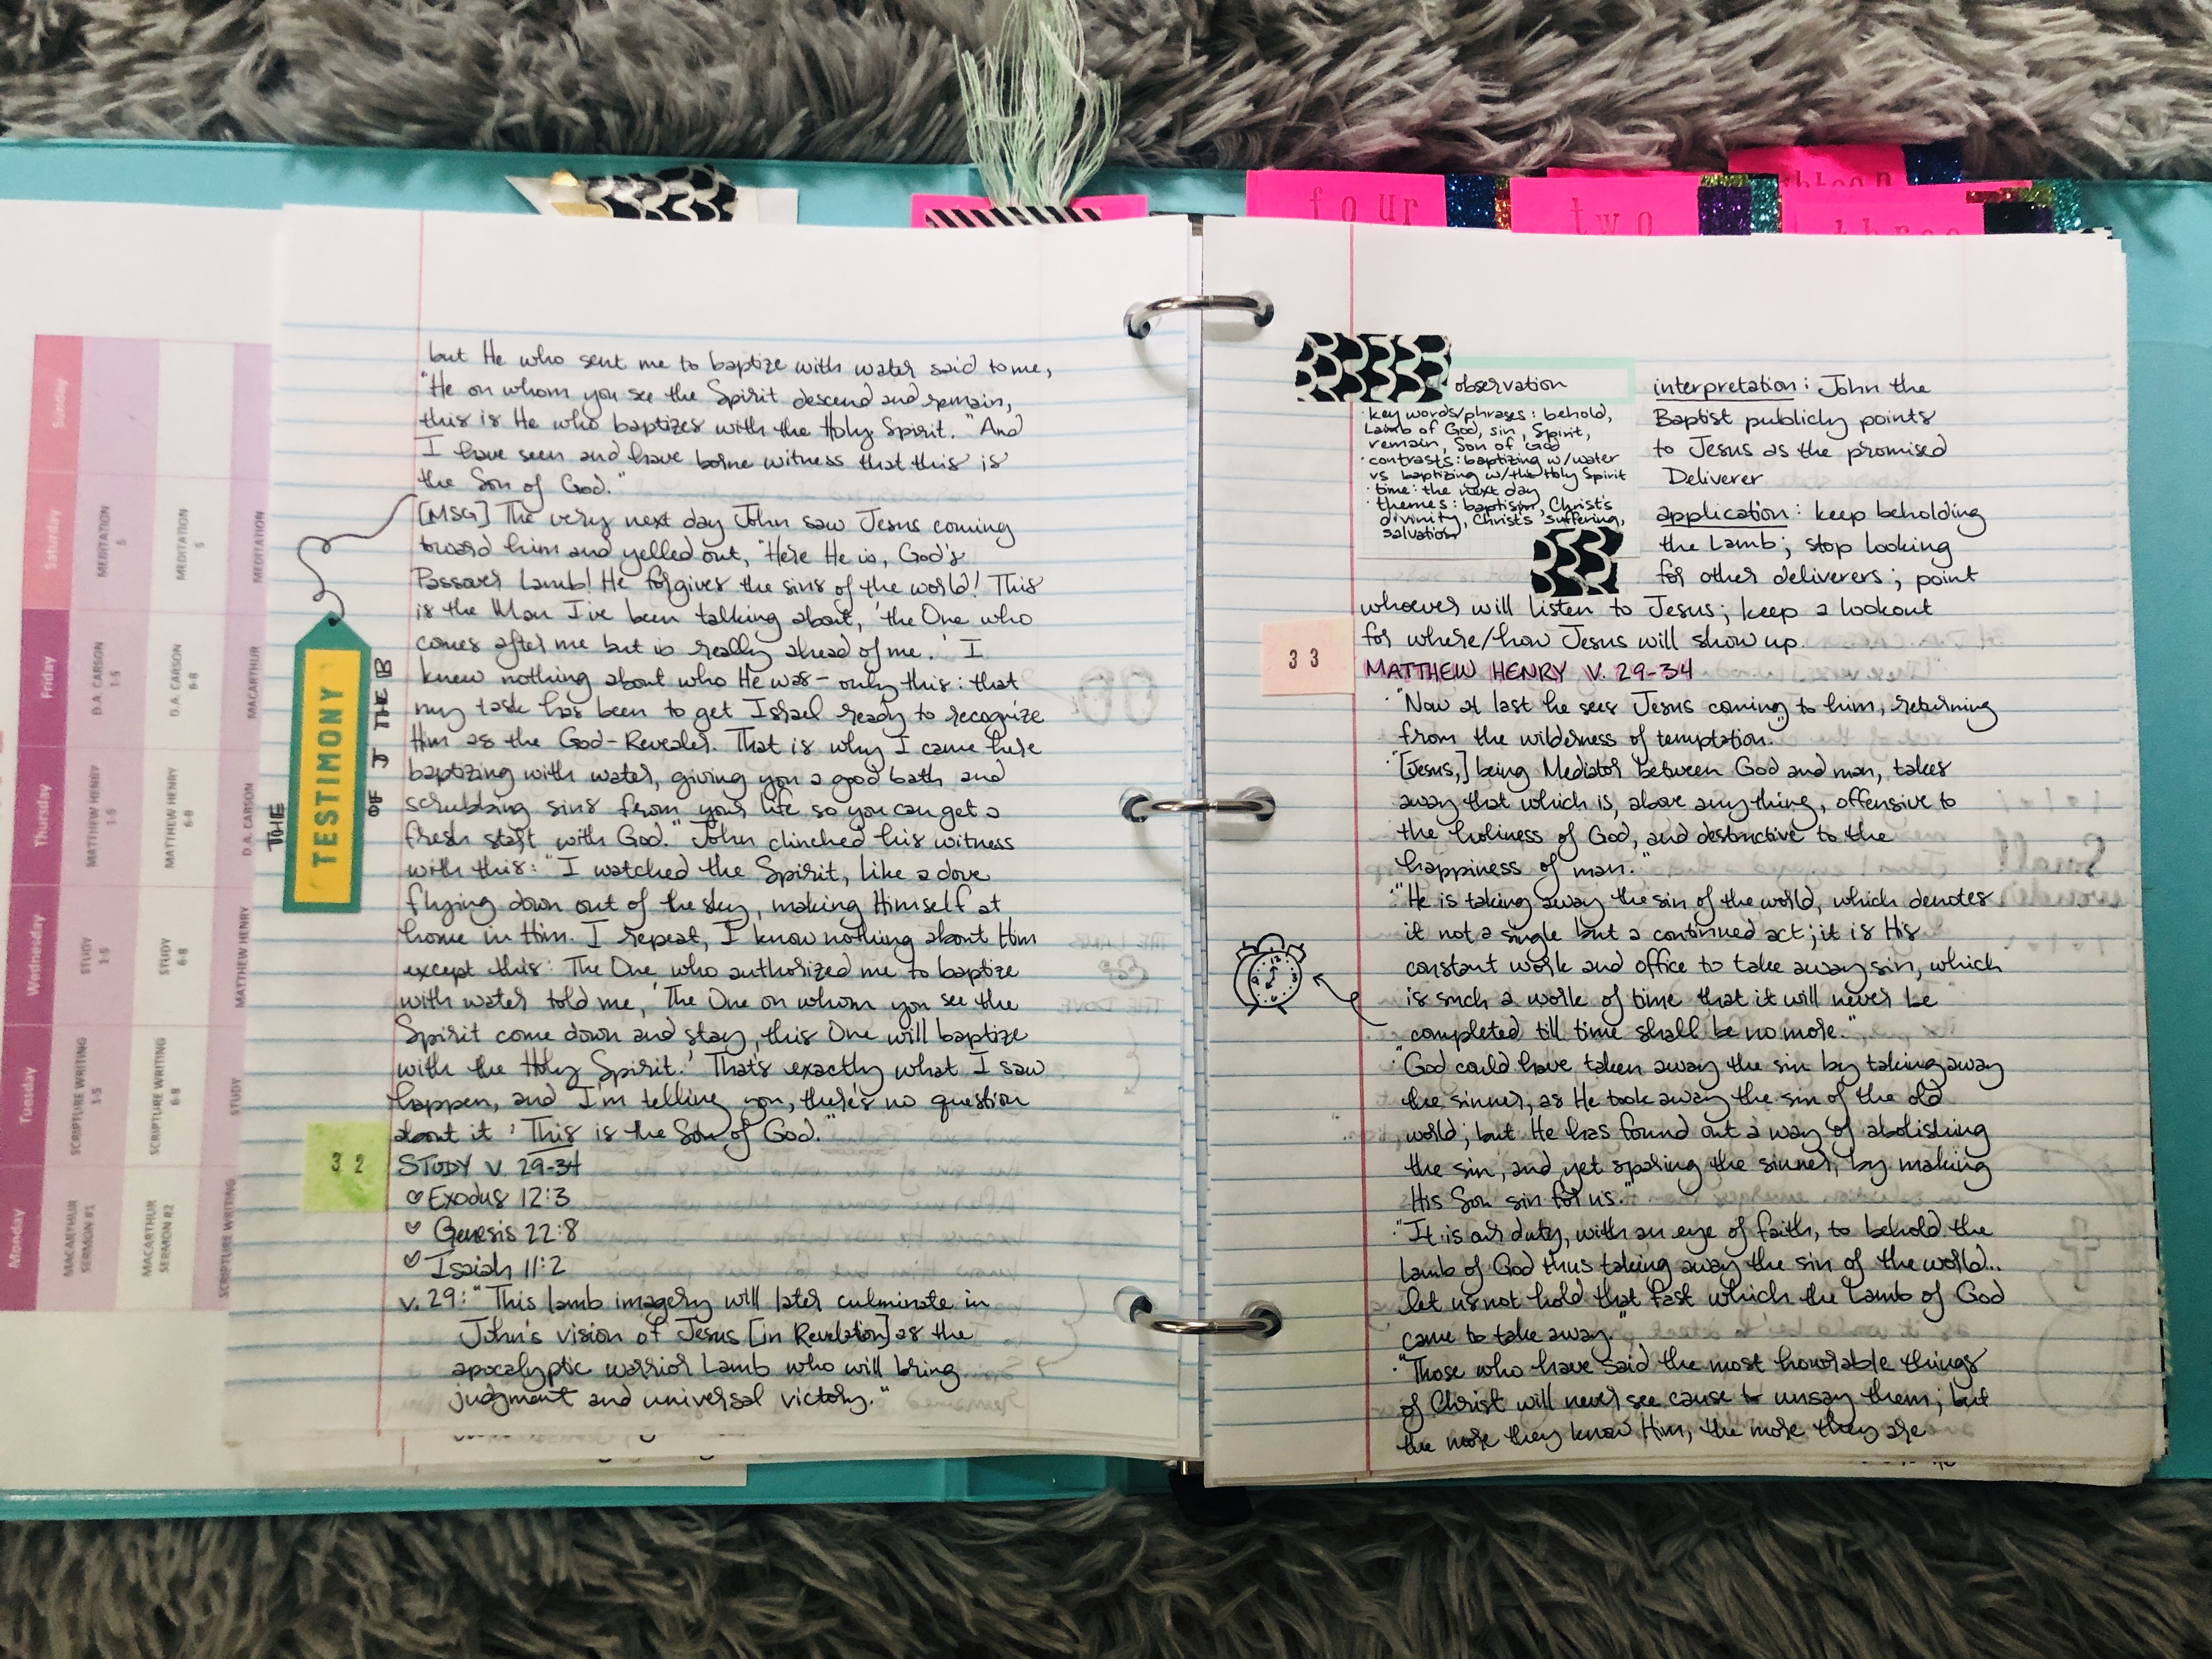 Sunday
Saturday
Friday
Thursday
Wednesday
Tuesday
Monday
MEDITATION
5
D.A. CARSON
1-5
MATTHEW HENRY
1-5
STUDY
1-5
SCRIPTURE WRITING
1-5
MACARTHUR
SERMON #1
MEDITATION
5
D.A. CARSON
6-8
MATTHEW HENRY
6-8
STUDY
6-8
SCRIPTURE WRITING
6-8
MACARTHUR
SERMON #2
MEDITATION
MACARTHUR
D.A. CARSON
MATTHEW HENRY
STUDY
SCRIPTURE WRITING
THE
TESTIMONY
OF J THE B
but He who sent me to baptize with water said to me,
"He on whom you see the Spirit descend and remain,
this is He who baptizes with the Holy Spirit." And
I have seen and have borne witness that this is
the Son of God."
[MSG] The very next day John saw Jesus coming
toward him and yelled out, "Here He is, God's
Passover Lamb! He forgives the sins of the world! This
is the Man I've been talking about, 'the One who
comes after me but is really ahead of me.' I
knew nothing about who He was - only this: that
my task has been to get Israel ready to recognize
Him as the God-Revealer. That is why I came here
baptizing with water, giving you a good bath and
scrubbing sins from your life so you can get a
fresh start with God." John clinched his witness
with this: "I watched the Spirit, like a dove
flying down out of the sky, making Himself at
home in Him. I repeat, I know nothing about Him
except this: The One who authorized me to baptize
with water told me, 'The One on whom you see the
Spirit come down and stay, this One will baptize
with the Holy Spirit.' That's exactly what I saw
happen, and I'm telling you, there's no question
about it: This is the Son of God."
32
STUDY V. 29-34
♡ Exodus 12:3
♡ Genesis 22:8
♡ Isaiah 11:2
v. 29: "This lamb imagery will later culminate in
John's vision of Jesus [in Revelation] as the
apocalyptic warrior Lamb who will bring
judgment and universal victory."
four
two
three
observation
· key words/phrases: behold,
Lamb of God, sin, Spirit,
remain, Son of God
· contrasts: baptizing w/water
vs baptizing w/the Holy Spirit
· time: the next day
· themes: baptism, Christ's
divinity, Christ's suffering,
salvation
interpretation: John the
Baptist publicly points
to Jesus as the promised
Deliverer
application: keep beholding
the Lamb; stop looking
for other deliverers; point
whoever will listen to Jesus; keep a lookout
for where/how Jesus will show up.
33
MATTHEW HENRY V. 29-34
· "Now at last he sees Jesus coming to him, returning
from the wilderness of temptation."
· "[Jesus,] being Mediator between God and man, takes
away that which is, above any thing, offensive to
the holiness of God, and destructive to the
happiness of man."
· "He is taking away the sin of the world, which denotes
it not a single but a continued act; it is His
constant work and office to take away sin, which
is such a work of time that it will never be
completed till time shall be no more."
· "God could have taken away the sin by taking away
the sinner, as He took away the sin of the old
world; but He has found out a way of abolishing
the sin, and yet sparing the sinner, by making
His Son sin for us."
· "It is our duty, with an eye of faith, to behold the
Lamb of God thus taking away the sin of the world...
let us not hold that fast which the Lamb of God
came to take away."
· "Those who have said the most honorable things
of Christ will never see cause to unsay them; but
the more they know Him, the more they are